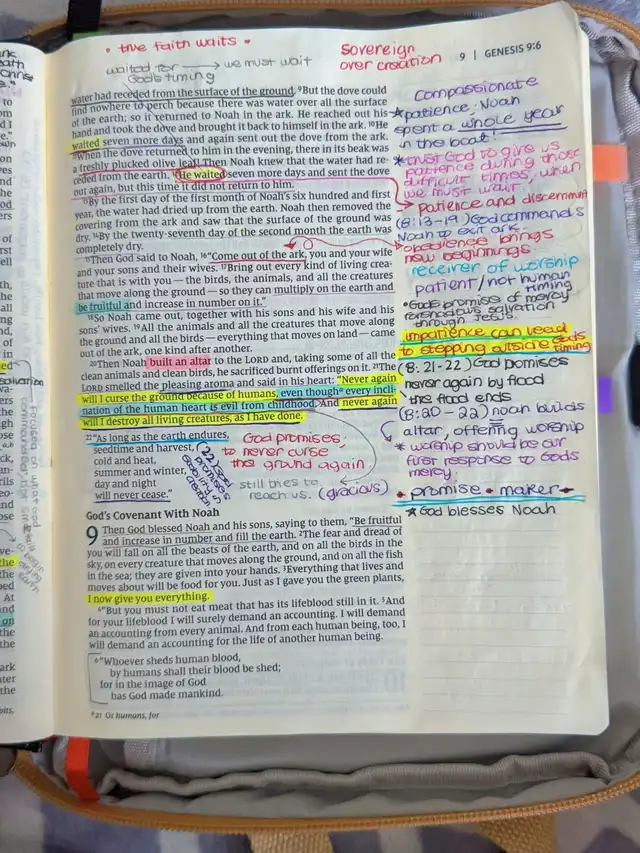 • true faith waits •
waited for → we must wait
God's timing
Sovereign
over creation
9 | GENESIS 9:6
water had receded from the surface of the ground. ⁹But the dove could
find nowhere to perch because there was water over all the surface
of the earth; so it returned to Noah in the ark. He reached out his
hand and took the dove and brought it back to himself in the ark. ¹⁰He
waited seven more days and again sent out the dove from the ark.
¹¹When the dove returned to him in the evening, there in its beak was
a freshly plucked olive leaf! Then Noah knew that the water had re-
ceded from the earth. ¹²He waited seven more days and sent the dove
out again, but this time it did not return to him.
¹³By the first day of the first month of Noah's six hundred and first
year, the water had dried up from the earth. Noah then removed the
covering from the ark and saw that the surface of the ground was
dry. ¹⁴By the twenty-seventh day of the second month the earth was
completely dry.
¹⁵Then God said to Noah, ¹⁶"Come out of the ark, you and your wife
and your sons and their wives. ¹⁷Bring out every kind of living crea-
ture that is with you — the birds, the animals, and all the creatures
that move along the ground — so they can multiply on the earth and
be fruitful and increase in number on it."
¹⁸So Noah came out, together with his sons and his wife and his
sons' wives. ¹⁹All the animals and all the creatures that move along
the ground and all the birds — everything that moves on land — came
out of the ark, one kind after another.
²⁰Then Noah built an altar to the LORD and, taking some of all the
clean animals and clean birds, he sacrificed burnt offerings on it. ²¹The
LORD smelled the pleasing aroma and said in his heart: "Never again
will I curse the ground because of humans, even though ᵃ every incli-
nation of the human heart is evil from childhood. And never again
will I destroy all living creatures, as I have done.
²²"As long as the earth endures,
seedtime and harvest,
cold and heat,
summer and winter,
day and night
will never cease."
God promises
to never curse
the ground again
still tries to
reach us. (gracious)
God's Covenant With Noah
9 Then God blessed Noah and his sons, saying to them, "Be fruitful
and increase in number and fill the earth. ²The fear and dread of
you will fall on all the beasts of the earth, and on all the birds in the
sky, on every creature that moves along the ground, and on all the fish
in the sea; they are given into your hands. ³Everything that lives and
moves about will be food for you. Just as I gave you the green plants,
I now give you everything.
⁴"But you must not eat meat that has its lifeblood still in it. ⁵And
for your lifeblood I will surely demand an accounting. I will demand
an accounting from every animal. And from each human being, too, I
will demand an accounting for the life of another human being.
⁶"Whoever sheds human blood,
by humans shall their blood be shed;
for in the image of God
has God made mankind.
ᵃ 21 Or humans, for
compassionate
★ patience: Noah
spent a whole year
in the boat!
* trust God to give us
patience during those
difficult times, when
we must wait!
patience and discernment
(8:13-19) God commands
Noah to exit ark.
obedience brings
new beginnings.
receiver of worship
patient/not human
timing
• God's promises of mercy
salvation
through Jesus.
impatience can lead
to stepping outside God's
timing
(8:21-22) God promises
never again by flood
the flood ends
(8:20-22) noah builds
altar, offering worship
* worship should be our
first response to Gods
mercy.
• promise • maker •
★ God blesses Noah